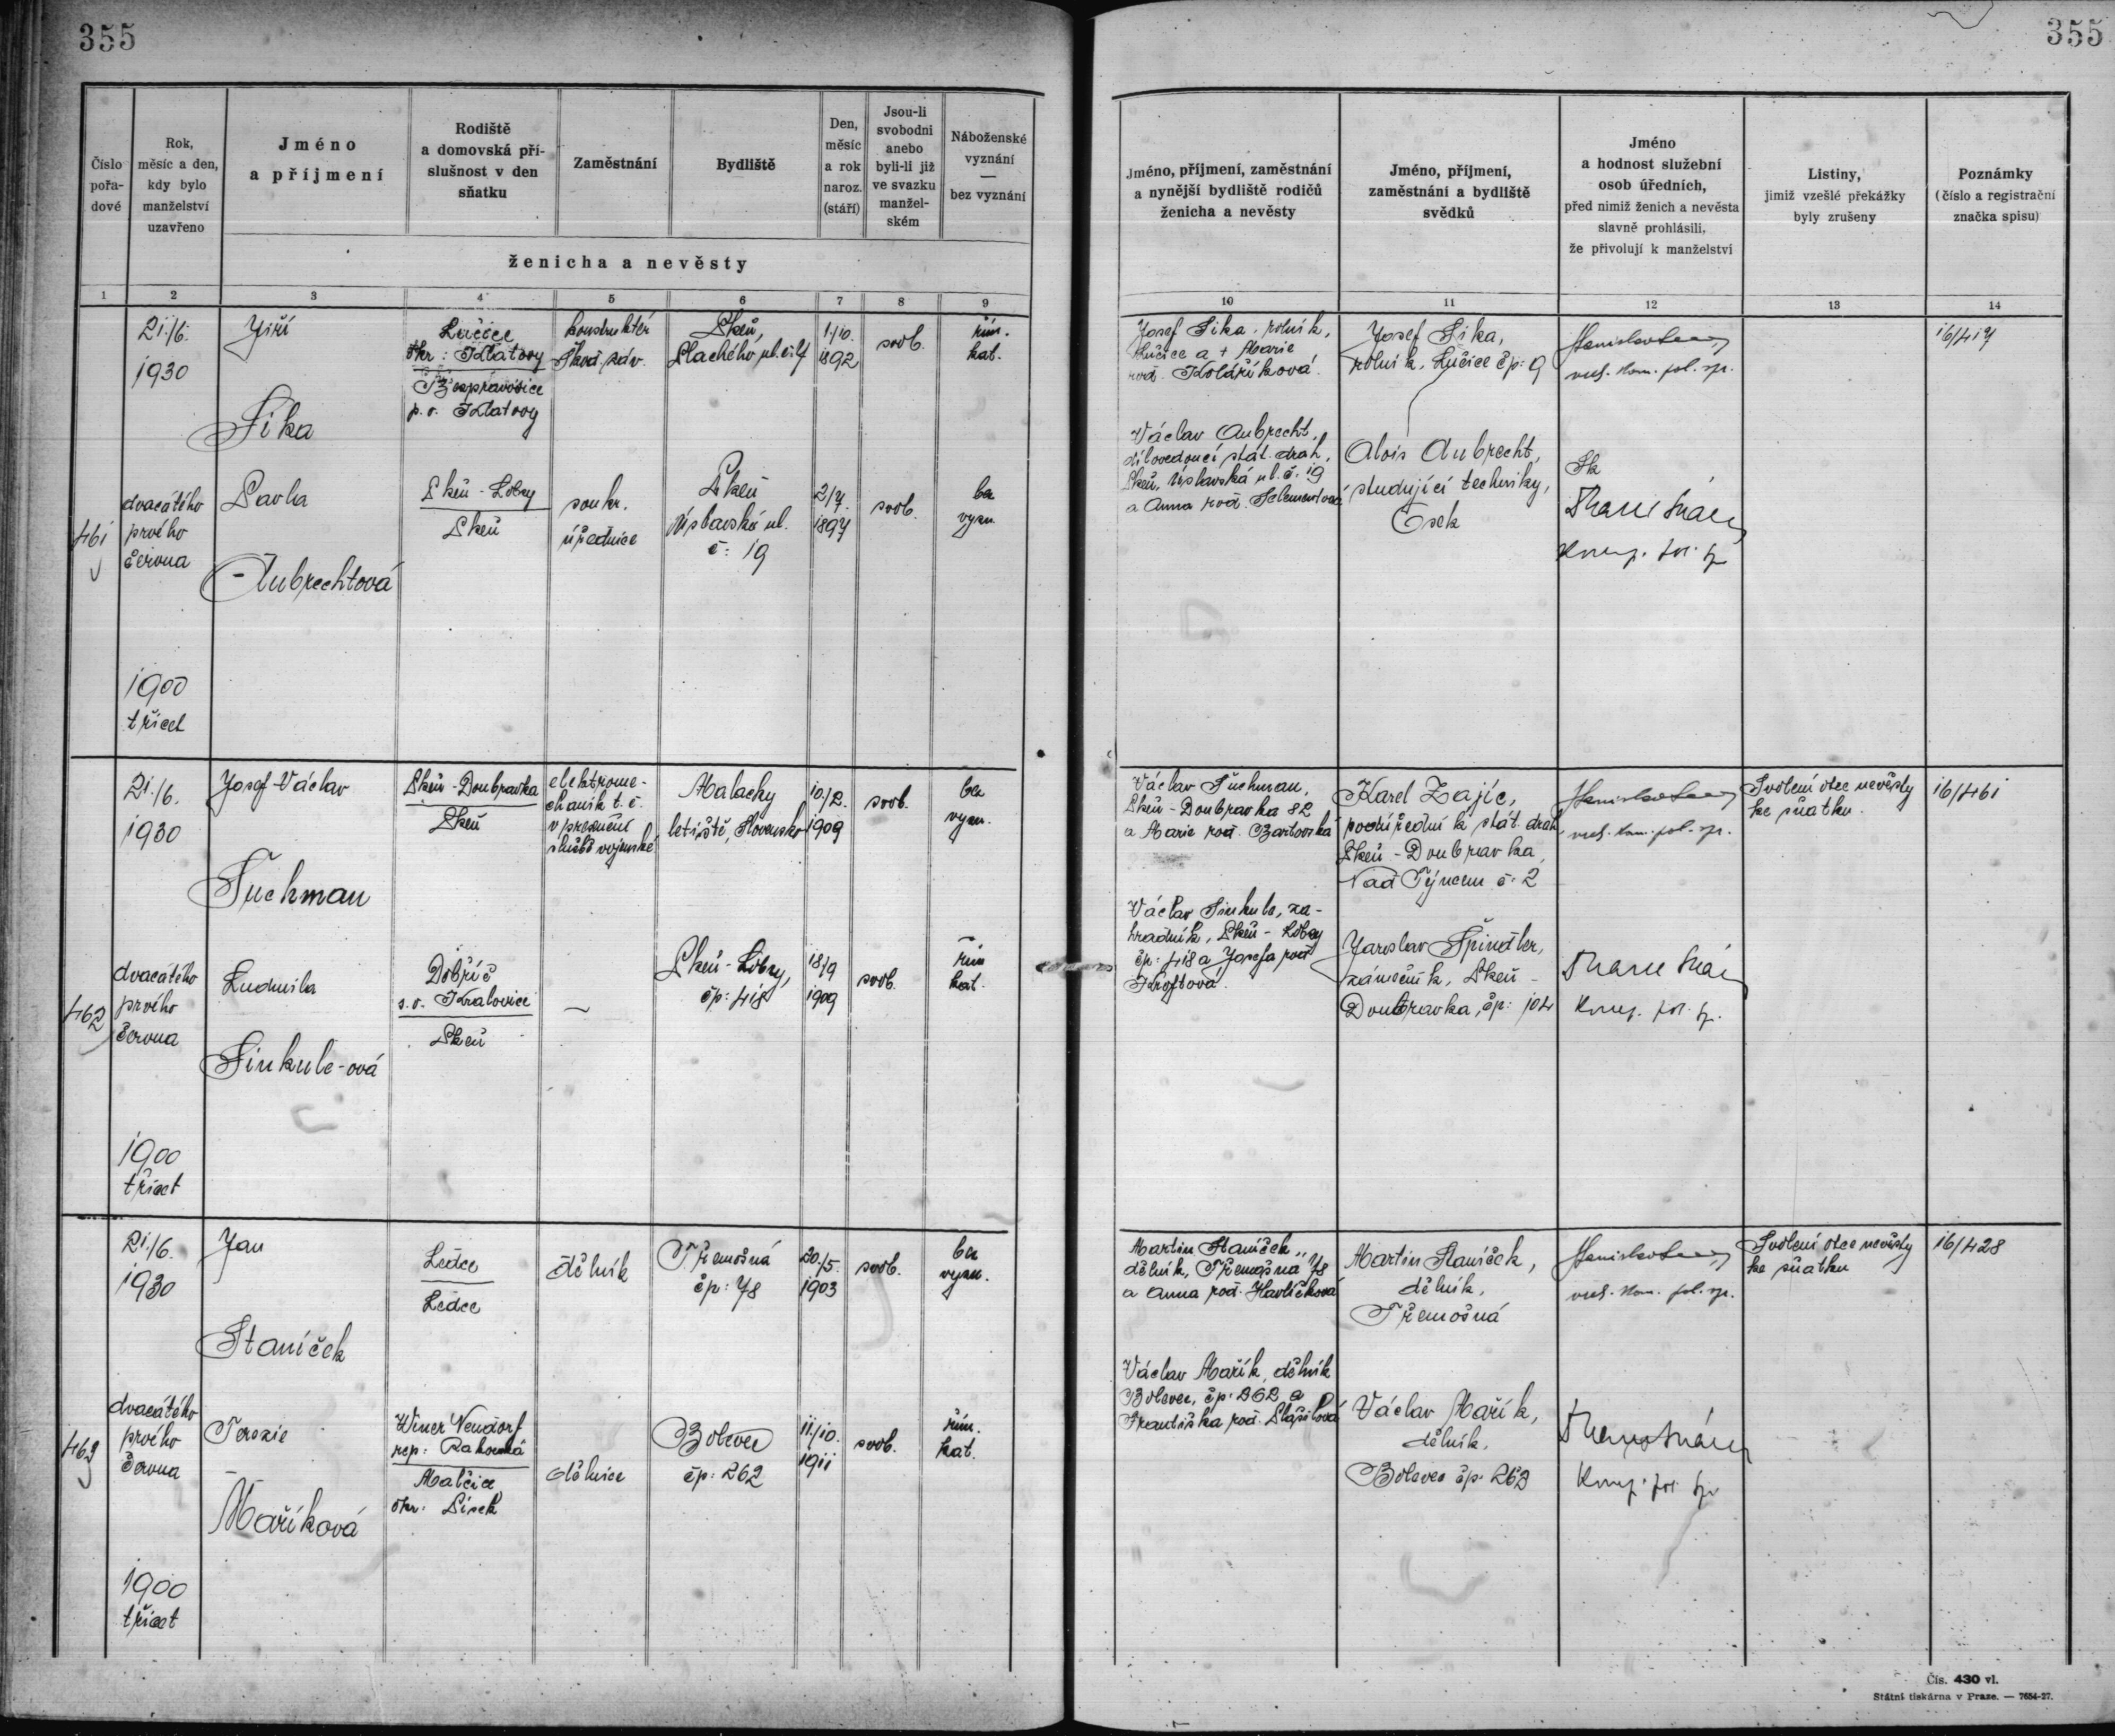 355
355
Číslo pořadové
Rok, měsíc a den, kdy bylo manželství uzavřeno
Jméno a příjmení
Rodiště a domovská příslušnost v den sňatku
Zaměstnání
Bydliště
Den, měsíc a rok naroz. (stáří)
Jsou-li svobodni anebo byli-li již ve svazku manželském
Náboženské vyznání — bez vyznání
ženicha a nevěsty
1 2 3 4 5 6 7 8 9
Jméno, příjmení, zaměstnání a nynější bydliště rodičů ženicha a nevěsty
Jméno, příjmení, zaměstnání a bydliště svědků
Jméno a hodnost služební osob úředních, před nimiž ženich a nevěsta slavně prohlásili, že přivolují k manželství
Listiny, jimiž vzešlé překážky byly zrušeny
Poznámky (číslo a registrační značka spisu)
10 11 12 13 14
461
21./6.
1930
dvacátého
prvého
června
1900
třicet
Jiří
Šika
Lučice
okr: Klatovy
Bezpravovice
p. o. Klatovy
konstruktér
Škod. záv.
Plzeň,
Plachého ul.
1./10.
1892
svob.
řím.
kat.
Pavla
Aubrechtová
Plzeň - Lobzy
Plzeň
soukr.
úřednice
Plzeň
Úslavská ul.
č: 19
2/7.
1897
svob.
bez
vyzn.
Josef Šika, rolník,
Lučice a + Marie
roz. Kolaříková.
Václav Aubrecht,
dílovedoucí stát. drah,
Plzeň, Úslavská ul. č. 19
a Anna roz.
Josef Šika,
rolník, Lučice čp: 9
Alois Aubrecht,
studující techniky,
Osek
16/417
462
21./6.
1930
dvacátého
prvého
června
1900
třicet
Josef Václav
Tuchman
Plzeň - Doubravka
Plzeň
elektrome-
chanik t. č.
v presenční
službě vojenské
Malacky
letiště, Slovensko
10./2.
1909
svob.
bez
vyzn.
Ludmila
Sinkule-ová
Dobříč
s. o. Kralovice
Plzeň
—
Plzeň - Lobzy,
čp: 418
18/9
1909
svob.
řím
kat.
Václav Tuchman,
Plzeň - Doubravka 82
a Marie roz. Bartovská
Václav Sinkule, za-
hradník, Plzeň - Lobzy
čp: 418 a Josefa roz
Kroftová.
Karel Zajíc,
podúředník stát. drah,
Plzeň - Doubravka,
Nad Týncem č. 2
Jaroslav Špindler,
zámečník, Plzeň -
Doubravka, čp: 104
Svolení otce nevěsty
ke sňatku.
16/461
463
21./6.
1930
dvacátého
prvého
června
1900
třicet
Jan
Staníček
Ledce
Ledce
dělník
Třemošná
čp: 78
20./5.
1903
svob.
bez
vyzn.
Terezie
Maříková
Wiener Neudorf
rep: Rakouská
Malčice,
okr: Písek
dělnice
Bolevec
čp: 262
11./10.
1911
svob.
řím.
kat.
Martin Staníček,
dělník, Třemošná 78
a Anna roz. Havlíčková
Václav Mařík, dělník
Bolevec, čp. 262 a
Františka roz.
Martin Staníček,
dělník,
Třemošná
Václav Mařík,
dělník,
Bolevec čp. 262
Svolení otce nevěsty
ke sňatku
16/428
Čís. 430 vl.
Státní tiskárna v Praze. — 7654-27.